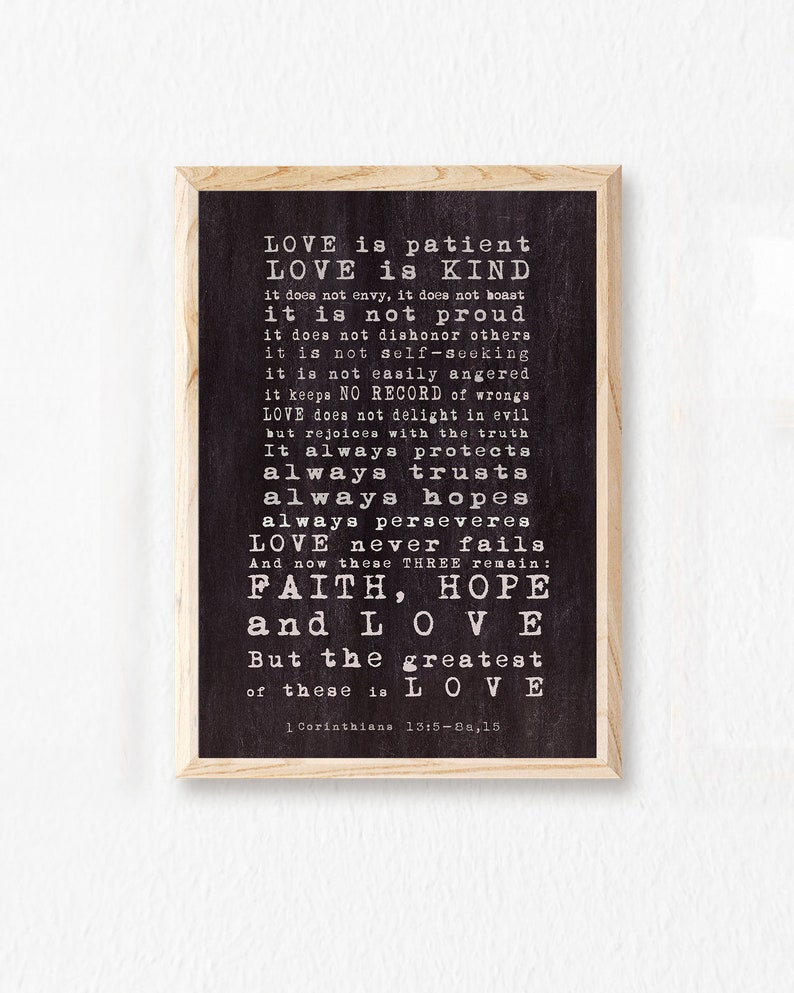 LOVE is patient
LOVE is KIND
it does not envy, it does not boast
it is not proud
it does not dishonor others
it is not self-seeking
it is not easily angered
it keeps NO RECORD of wrongs
LOVE does not delight in evil
but rejoices with the truth
It always protects
always trusts
always hopes
always perseveres
LOVE never fails
And now these THREE remain:
FAITH, HOPE
and LOVE
But the greatest
of these is LOVE
1 Corinthians 13:5-8a,15